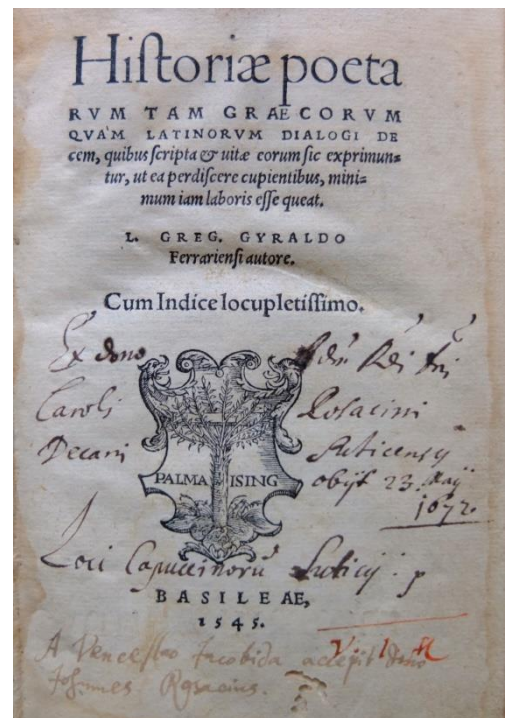 Hiſtoriæ poeta
RVM TAM GRAECORVM
QVA'M LATINORVM DIALOGI DE
cem, quibus ſcripta & uitæ eorum ſic exprimun=
tur, ut ea perdiſcere cupientibus, mini=
mum iam laboris eſſe queat.
L. GREG. GYRALDO
Ferrarienſi autore.
Cum Indice locupletiſſimo.
Ex dono Rdi
Caroli Rosacini
Decani Suticensis
PALMA ISING
obijt 23 Maij
1672.
Loci Capucinorũ Suticij
BASILEAE,
1545.
A Venceslao Jacobida accepit dono
Johannes Rosacius.